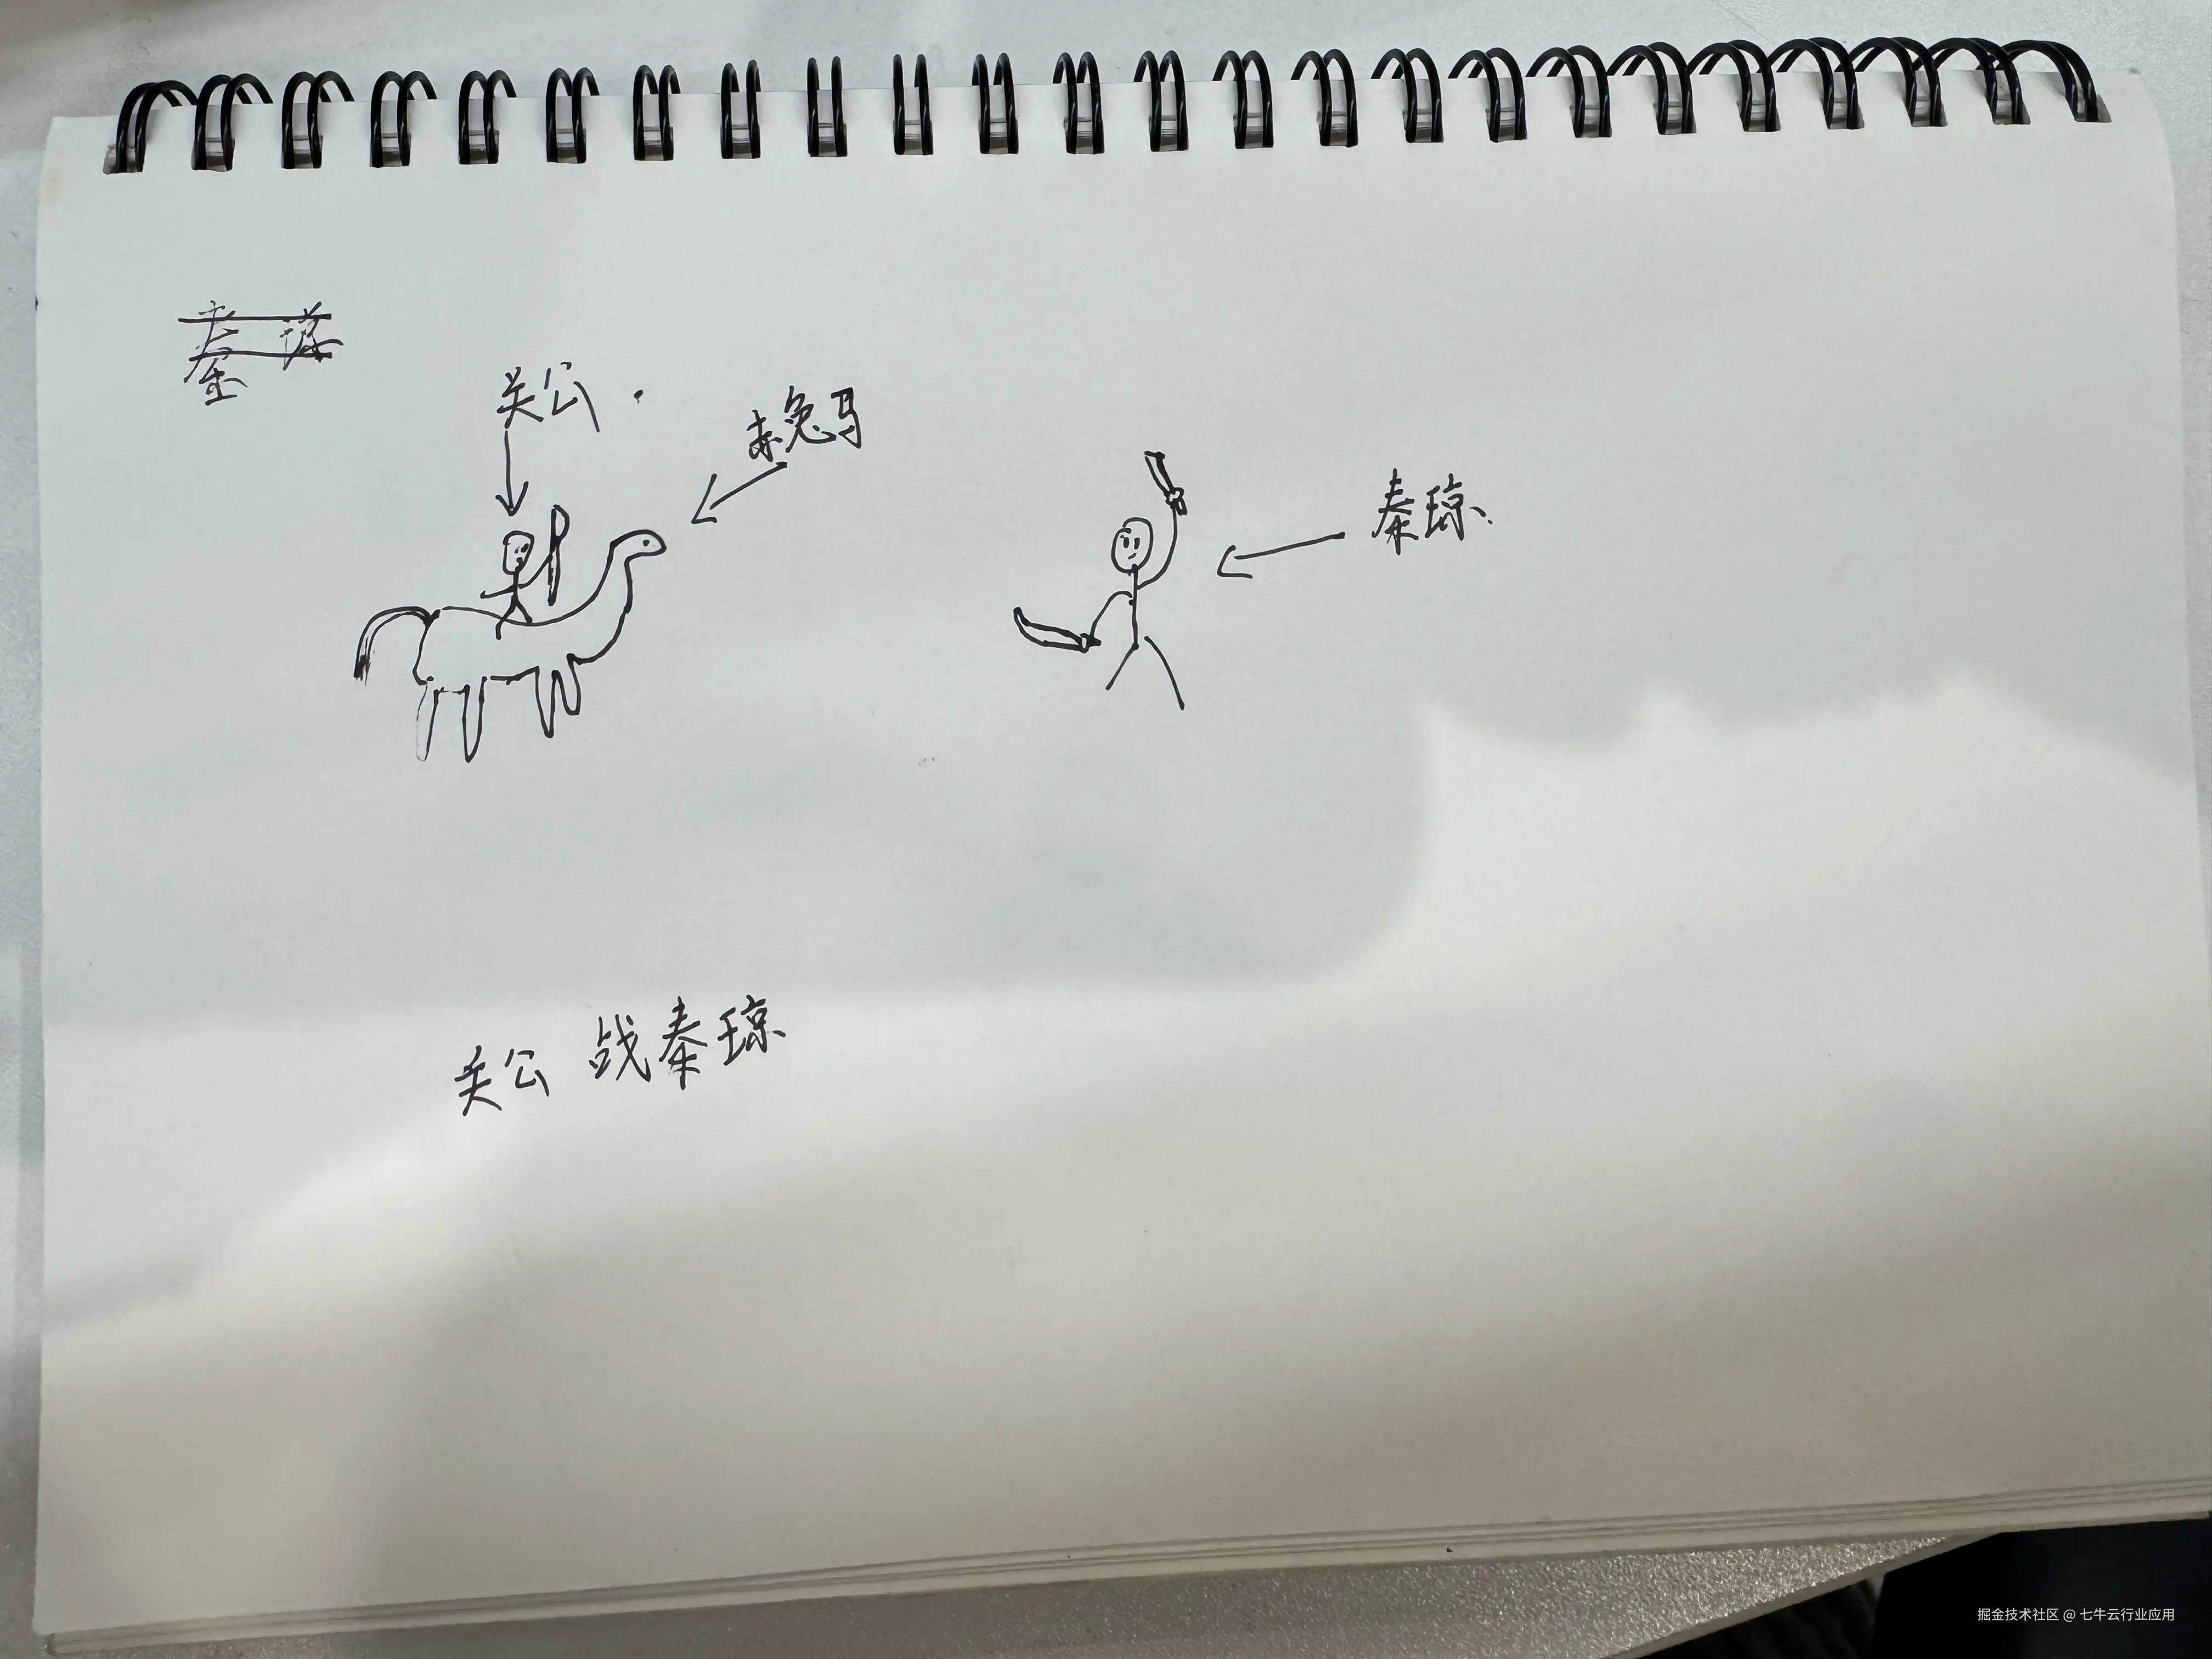 关公.
赤兔马
秦琼.
关公 战秦琼
掘金技术社区 @ 七牛云行业应用